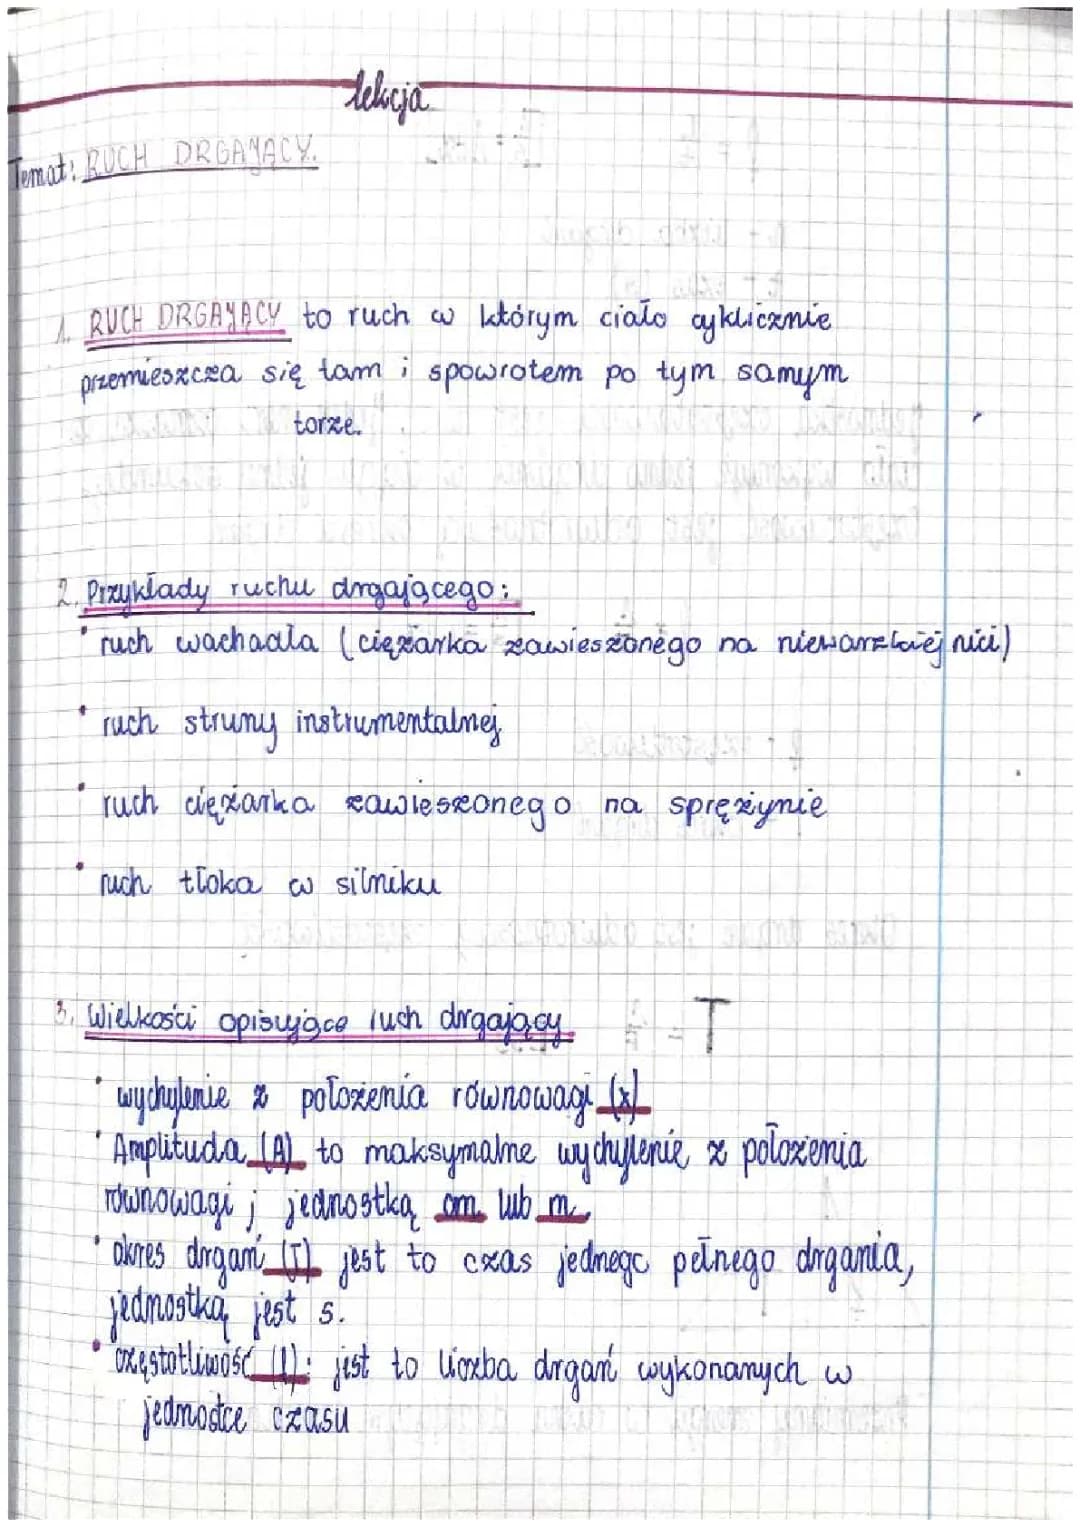 lekcja
Temat: RUCH DRGAJĄCY.
1. RUCH DRGAJĄCY to ruch w którym ciało cyklicznie
przemieszcza się tam i spowrotem po tym samym
torze.
2. Przykłady ruchu drgającego:
• ruch wachadła (ciężarka zawieszonego na nieważkiej nici)
• ruch struny instrumentalnej
• ruch ciężarka zawieszonego na sprężynie
• ruch tłoka w silniku
3. Wielkości opisujące ruch drgający
• wychylenie z położenia równowagi (x)
• Amplituda (A) to maksymalne wychylenie z położenia
równowagi; jednostką cm lub m.
• okres drgań (T) jest to czas jednego pełnego drgania,
jednostką jest s.
• częstotliwość (f): jest to liczba drgań wykonanych w
jednostce czasu